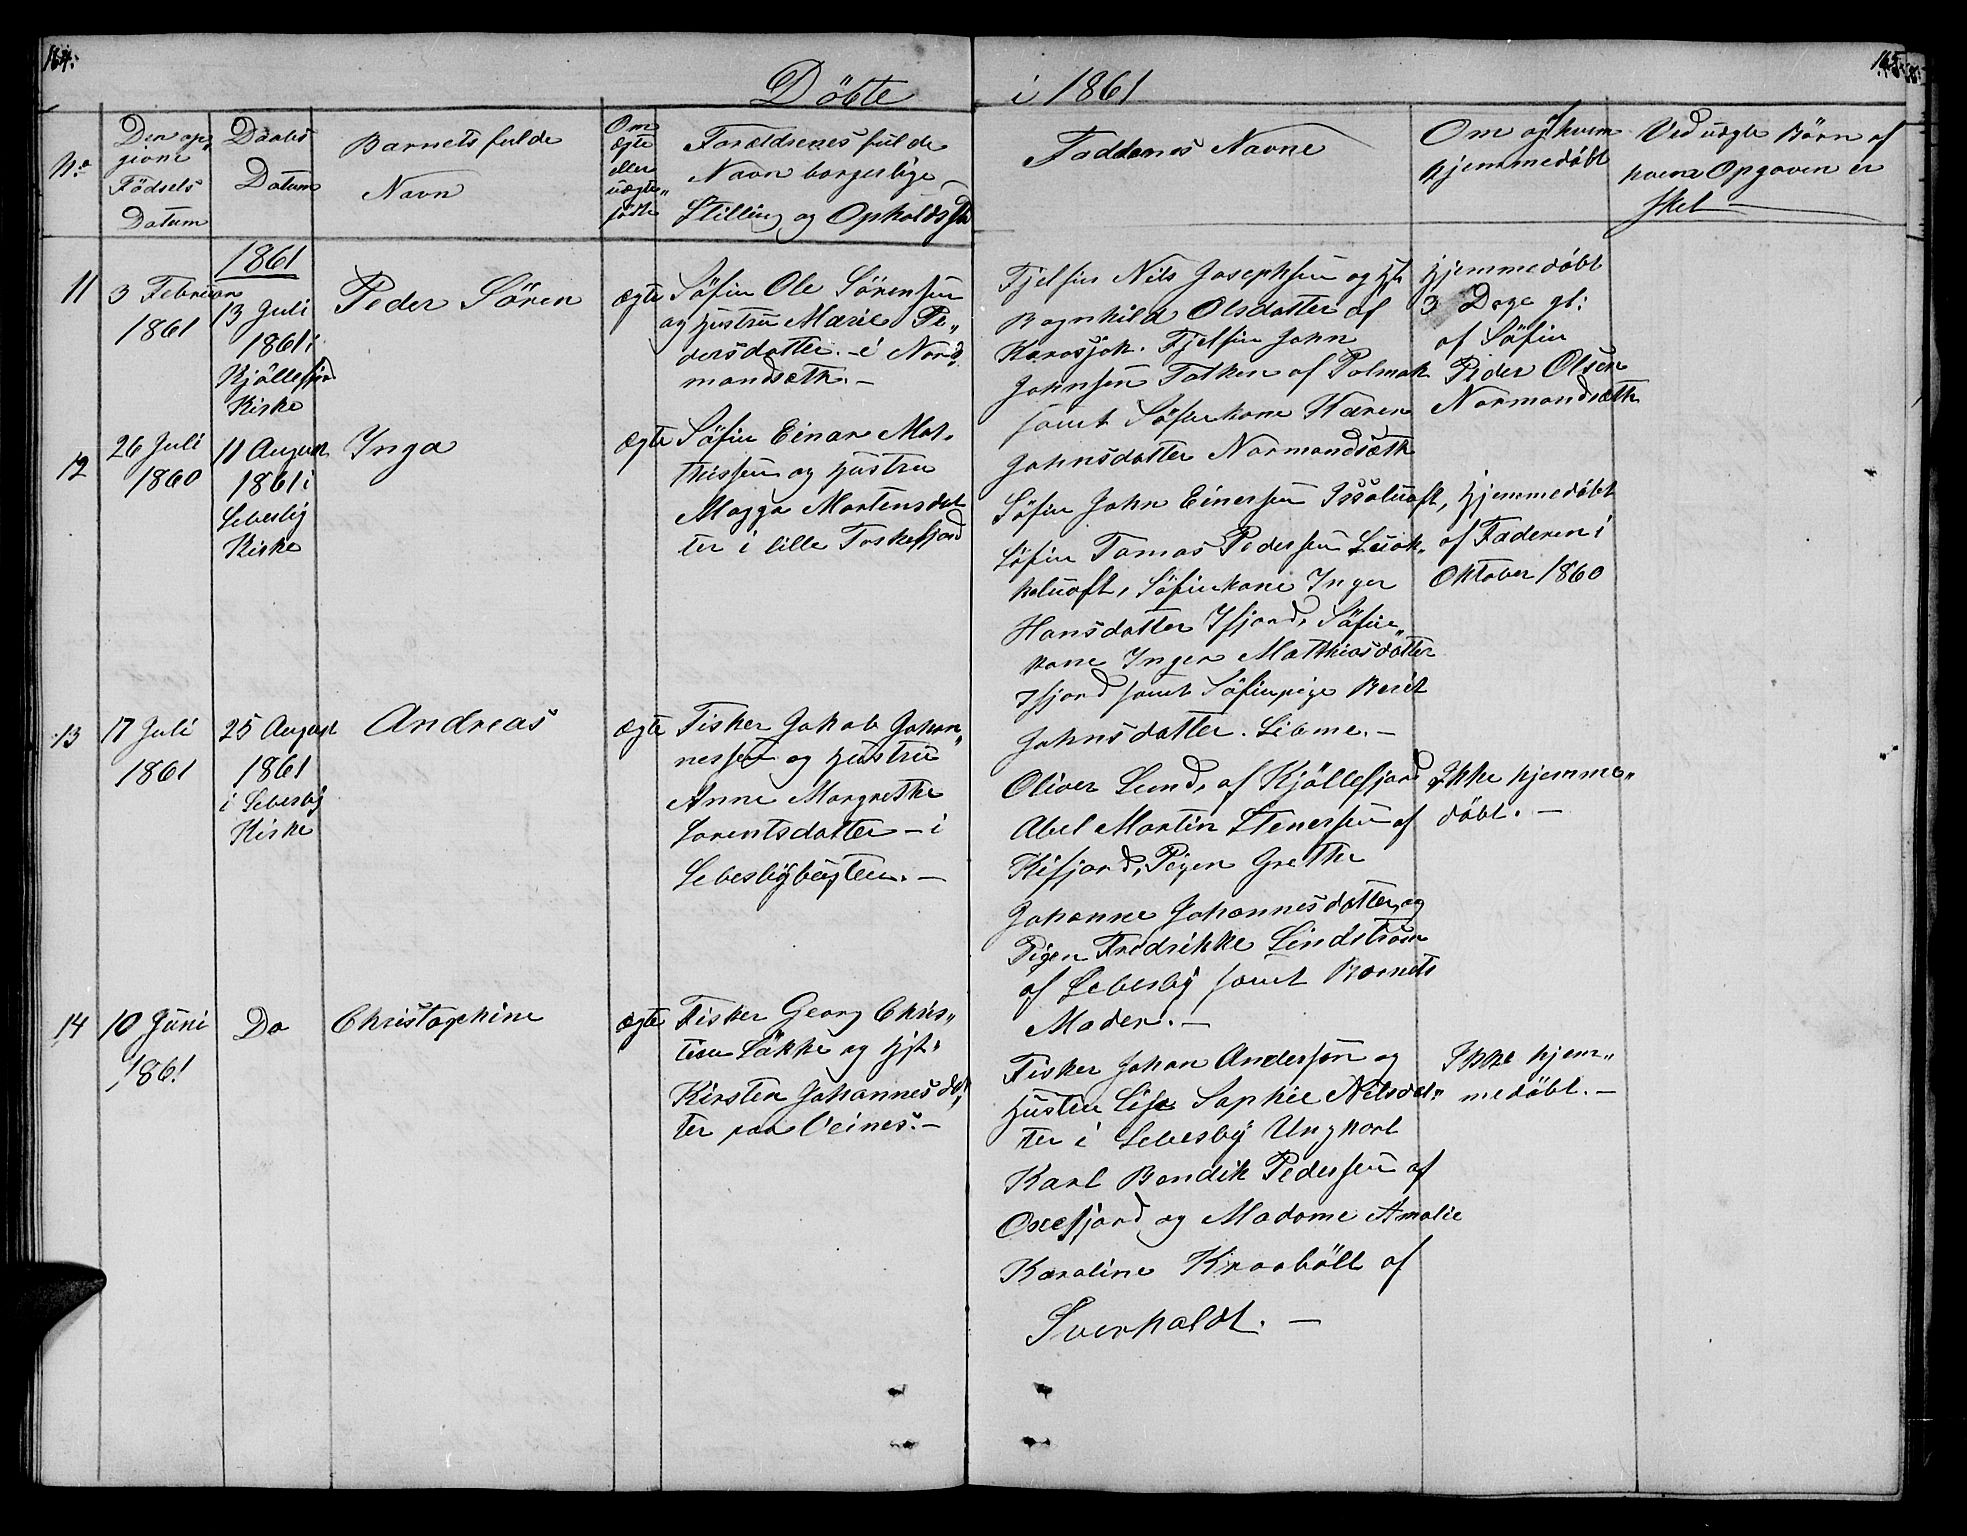 164.
165.
Döbte i 1861
No
Den op„
givne
Födsels
Datum
Daabs
Datum
Barnets fulde
Navn
Om
ægte
eller
uægte„
födte
Forældrenes fulde
Navn borgerlige
Stilling og Opholdsst
Faddernes Navne
Om og af hvem
hjemmedöbt
Ved uægte Börn af
hvem Opgaven er
skel
11
3 Februar
1861
1861
13 Juli
1861 i
Kjöllefjord
Kirke
Peder Sören
ægte
Söfin Ole Sörensen
og Hustru Marie Pe„
dersdatter. – i Nord
mandsæth. –
Fjelfin Nils Josephsen og Hst
Ragnhild Olsdatter af
Karasjok. Fjelfin John
Johnsen Tatken af Polmak
samt Söfinkone Karen
Johnsdatter Normandsæth
Hjemmedöbt
3 Dage gl:
af Söfin
Peder Olsen
Normandsæth
12
26 Juli
1860
11 August
1861 i
Lebesby
Kirke
Inga
ægte
Söfin Einar Mat„
thissen og Hustru
Magga Mortensdat
ter i lille Torskefjord
Söfin John Einersen Issoluoft,
Söfin Tomas Pedersen Luok„
koluoft, Söfinkone Inger
Hansdatter Ifjord, Söfin„
kone Inger Matthiasdatter
Ifjord samt Söfinpige Berit
Johnsdatter. Libme. –
Hjemmedöbt
af Faderen i
Oktober 1860
13
17 Juli
1861
25 August
1861
i Lebesby
Kirke
Andreas
ægte
Fisker Jakob Johan„
nessen og Hustru
Anne Margrethe
Lorentsdatter – i
Lebesbybugten. –
Oliver Lund, af Kjöllefjord
Abel Martin Stenersen af
Kifjord, Pigen Grethe
Johanne Johannesdatter og
Pigen Fredrikke Lindström
af Lebesby samt Barnets
Moder. –
Ikke hjemme„
döbt. –
14
10 Juni
1861
Do
Christophine
ægte
Fisker Georg Chris„
tian Läkke og Hst.
Kirsten Johannesdat
ter paa Veines. –
Fisker Johan Anderson og
Hustru Lise Sophie Nilsdat„
ter i Lebesby Ungkarl
Karl Bendik Pedersen af
Oxefjord og Madame Amalie
Karoline Kraaböll af
Sværholdt. –
Ikke hjem„
medöbt. –